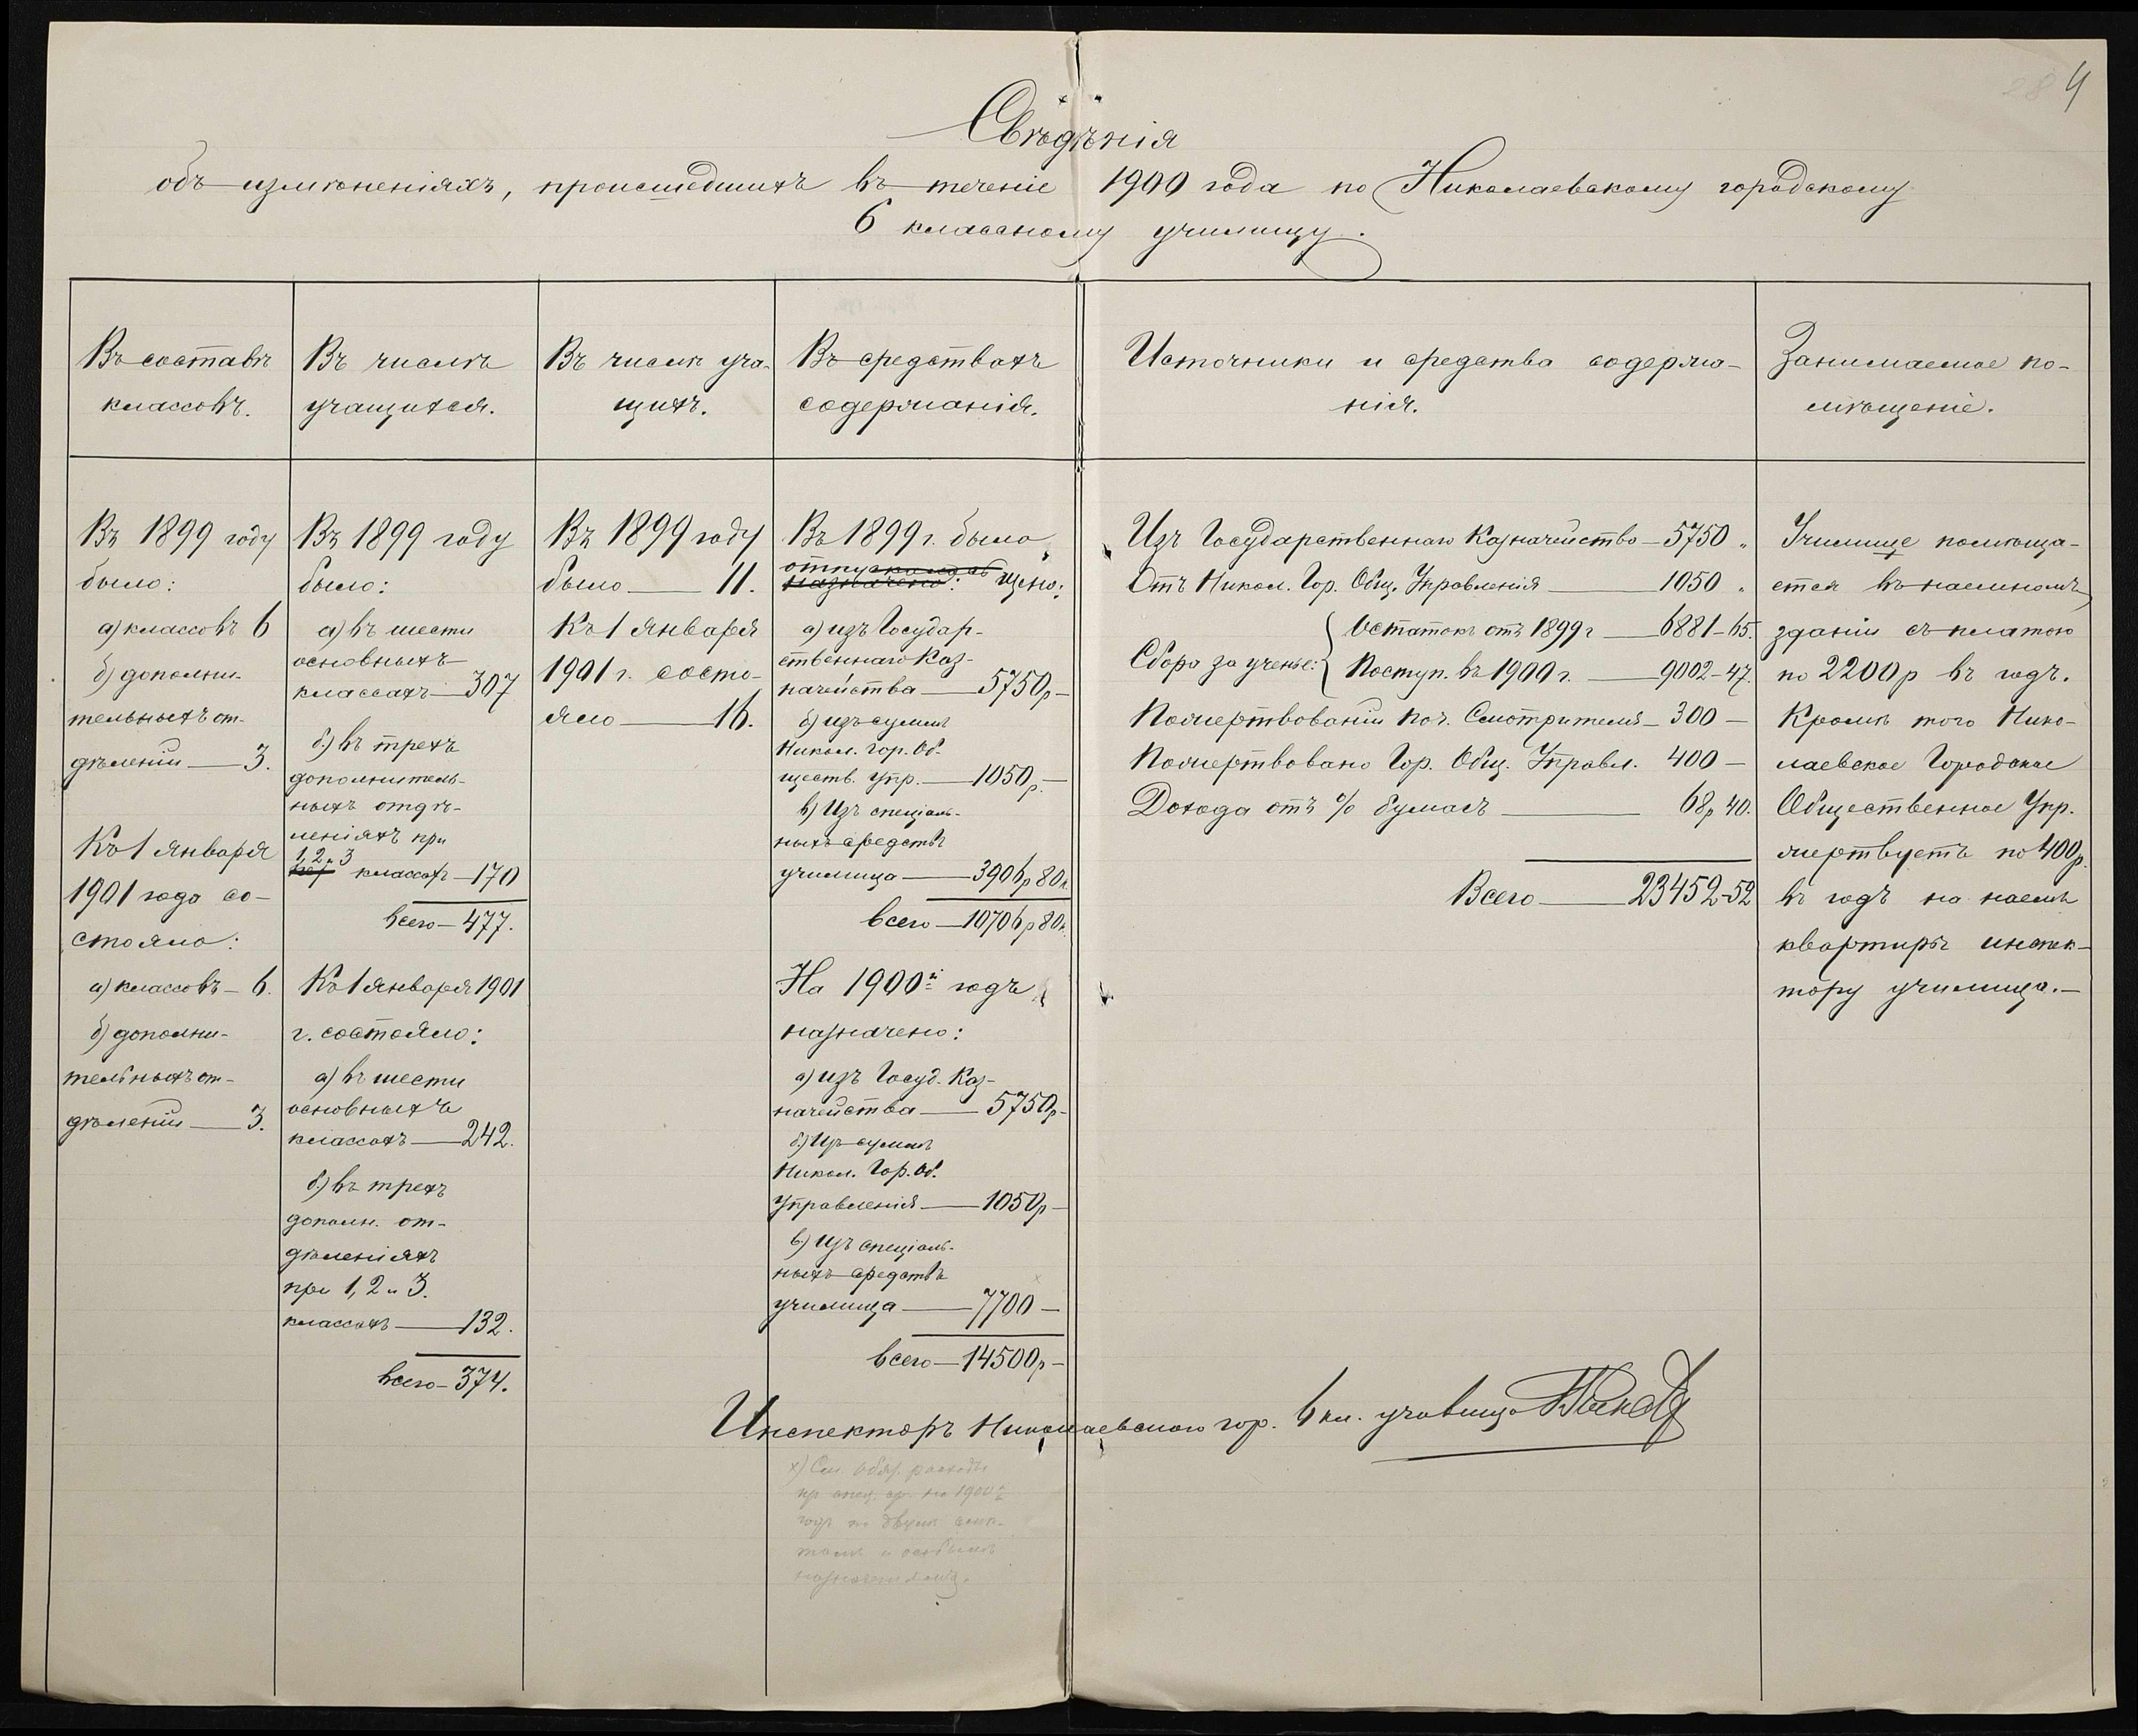 4
Свѣдѣнія
объ измѣненіяхъ, происшедшихъ въ теченіе 1900 года по Николаевскому городскому
6 классному училищу.
Въ составѣ
классовъ.
Въ 1899 году
было:
а) классовъ 6
б) дополни-
тельныхъ от-
дѣленій — 3.
Къ 1 января
1901 года со-
стояло:
а) классовъ — 6.
б) дополни-
тельныхъ от-
дѣленій — 3.
Въ числѣ
учащихся.
Въ 1899 году
было:
а) въ шести
основныхъ
классахъ — 307
б) въ трехъ
дополнитель-
ныхъ отдѣ-
леніяхъ при
1, 2 и 3
классахъ — 170
всего — 477.
Къ 1 января 1901
г. состояло:
а) въ шести
основныхъ
классахъ — 242.
б) въ трехъ
дополн. от-
дѣленіяхъ
при 1, 2 и 3.
классахъ — 132.
всего — 374.
Въ числѣ уча-
щихъ.
Въ 1899 году
было — 11.
Къ 1 января
1901 г. состо-
яло — 16.
Въ средствахъ
содержанія.
Въ 1899 г. было
отпущено:
а) изъ Государ-
ственнаго Каз-
начейства — 5750 р —
б) изъ суммъ
Никол. гор. Об-
ществ. Упр. — 1050 р. —
в) Изъ спеціаль-
ныхъ средствъ
училища — 3906 р 80 к.
всего — 10706 р 80 к.
На 1900й годъ
назначено:
а) изъ Госуд. Каз-
начейства — 5750 р —
б) Изъ суммъ
Никол. Гор. Об.
Управленія — 1050 р —
в) Изъ спеціаль-
ныхъ средствъ
училища — 7700 —
всего — 14500 р —
Источники и средства содержа-
нія.
Изъ Государственнаго Казначейства — 5750 "
Отъ Никол. Гор. Общ. Управленія — 1050 "
Сбора за ученье: { Остатокъ отъ 1899 г — 6881-65.
Поступ. въ 1900 г. — 9002-47.
Пожертвованій Поч. Смотрителя — 300 —
Пожертвовано Гор. Общ. Управл. 400 —
Дохода отъ % бумагъ — 68 р 40.
Всего — 23452-52
Занимаемое по-
мѣщеніе.
Училище помѣща-
ется въ наемномъ
зданіи съ платою
по 2200 р въ годъ.
Кромѣ того Нико-
лаевское Городское
Общественное Упр.
жертвуетъ по 400 р.
въ годъ на наемъ
квартиры инспек-
тору училища. —
Инспекторъ Николаевскаго гор. 6 кл. училища
х) См. расходы
на 1900й